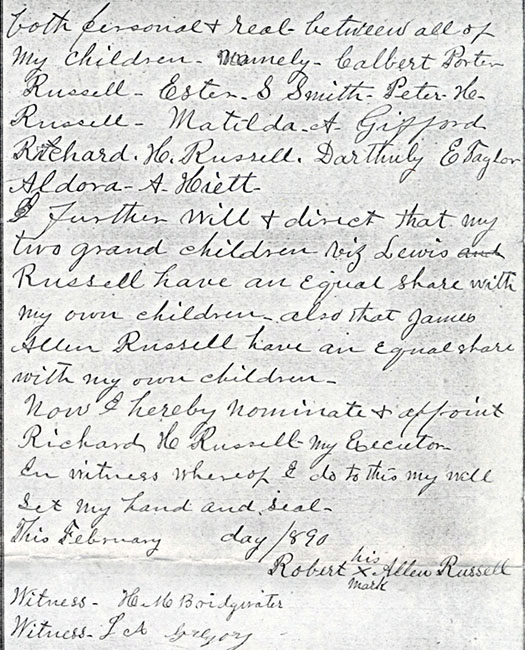 both personal & real between all of
my children - namely - Calbert Porter
Russell - Ester - S Smith - Peter - H -
Russell - Matilda - A - Gifford
Richard. H. Russell. Darthuly E Taylor
Aldora - A - Hiett -
I further will & direct that my
two grand children viz Lewis and
Russell have an equal share with
my own children - also that James
Allen Russell have an equal share
with my own children -
Now I hereby nominate & appoint
Richard H Russell - my Executor
In witness whereof I do to this my will
set my hand and seal -
This February day 1890
his
Robert X Allen Russell
mark
Witness - H. M Bridgwater
Witness - L A Gregory